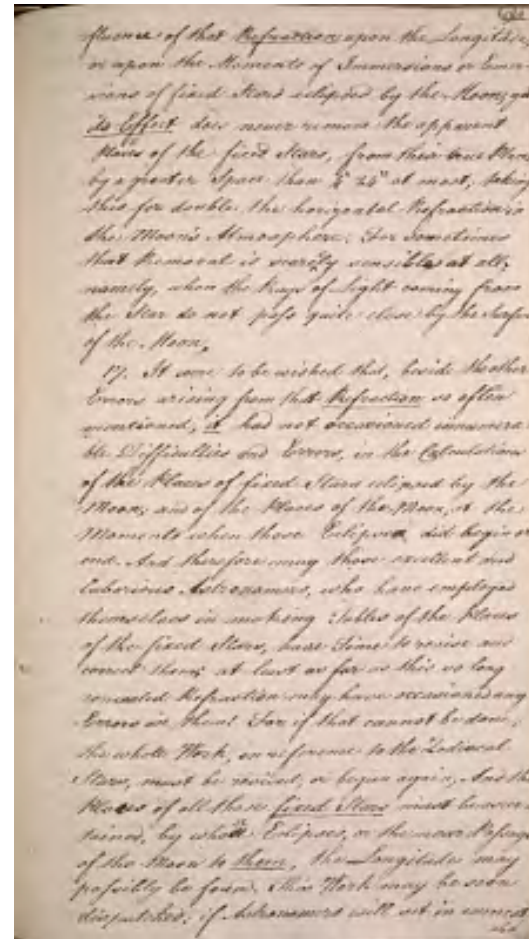 fluence of that Refraction upon the Longitude,
or upon the Moments of Immersions or Emer-
sions of fixed Stars eclipsed by the Moon; yet
its Effect does never remove the apparent
Places of the fixed Stars, from their true Places
by a greater Space than 24" at most; taking
this for double the horizontal Refraction in
the Moon's Atmosphere: For sometimes
that Removal is scarcely sensible at all,
namely, when the Rays of Light coming from
the Star do not pass quite close by the Surface
of the Moon.
17. It were to be wished that, beside the other
Errors arising from that Refraction so often
mentioned, it had not occasioned innumera-
ble Difficulties and Errors, in the Calculations
of the Places of fixed Stars eclipsed by the
Moon; and of the Places of the Moon, at the
Moments when those Eclipses did begin or
end. And therefore may those excellent and
laborious Astronomers, who have employed
themselves in making Tables of the Places
of the fixed Stars, have Time to revise and
correct them; at least as far as this so long
concealed Refraction may have occasioned any
Errors in them! For if that cannot be done,
the whole Work, in reference to the Zodiacal
Stars, must be revised, or begun again. And the
Places of all those fixed Stars must be ascer-
tained, by whose Eclipses, or the near Passage
of the Moon to them, the Longitude may
possibly be found. This Work may be soon
dispatched; if Astronomers will set in earnest